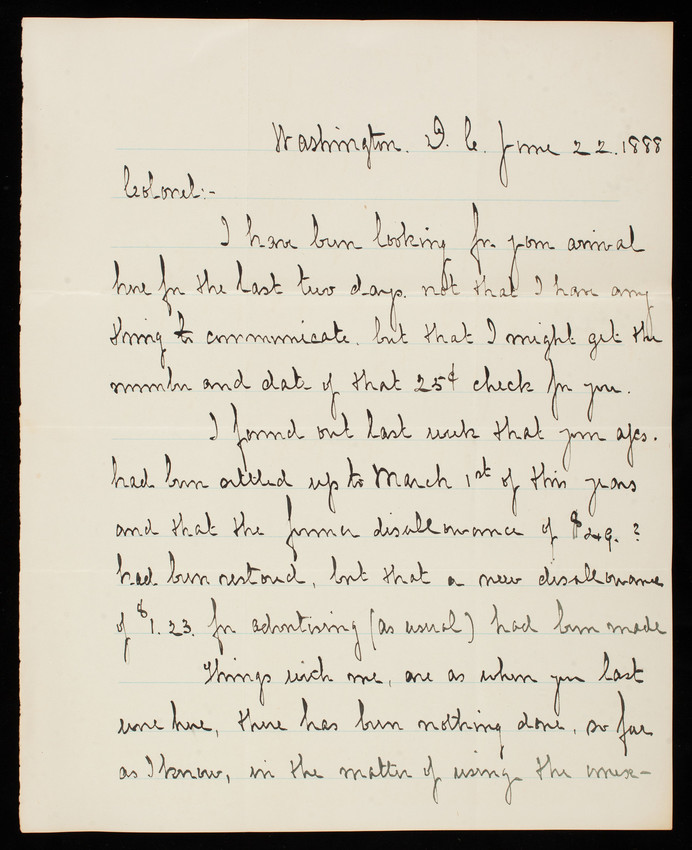 Washington. D. C. June 22. 1888
Colonel:-
I have been looking for your arrival
here for the last two days. not that I have any
thing to communicate. but that I might get the
number and date of that 25¢ check for you.
I found out last week that your a/cs.
had been settled up to March 1st of this years
and that the former disallowance of $49. ?
had been restored, but that a new disallowance
of $1.23. for advertising (as usual) had been made
Things with me, are as when you last
were here, there has been nothing done, so far
as I know, in the matter of using the unex-